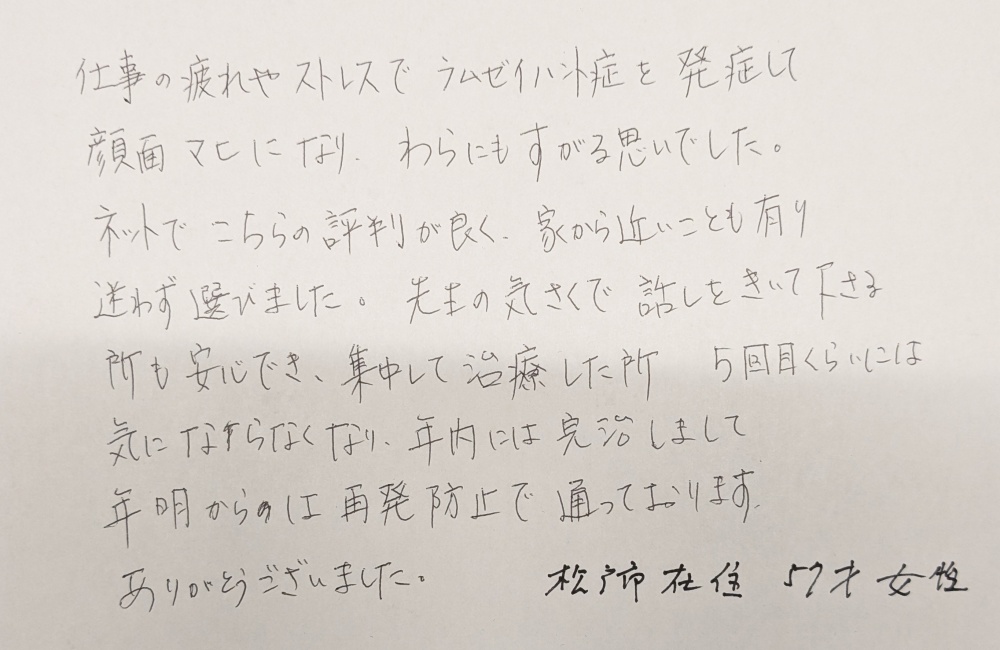 仕事の疲れやストレスでラムゼイハント症を発症して
顔面マヒになり、わらにもすがる思いでした。
ネットでこちらの評判が良く、家から近いことも有り
迷わず選びました。先生の気さくで話しをきいて下さる
所も安心でき、集中して治療した所 5回目くらいには
気にならなくなり、年内には完治しまして
年明からのは再発防止で通っております。
ありがとうございました。 松戸市在住 57才女性